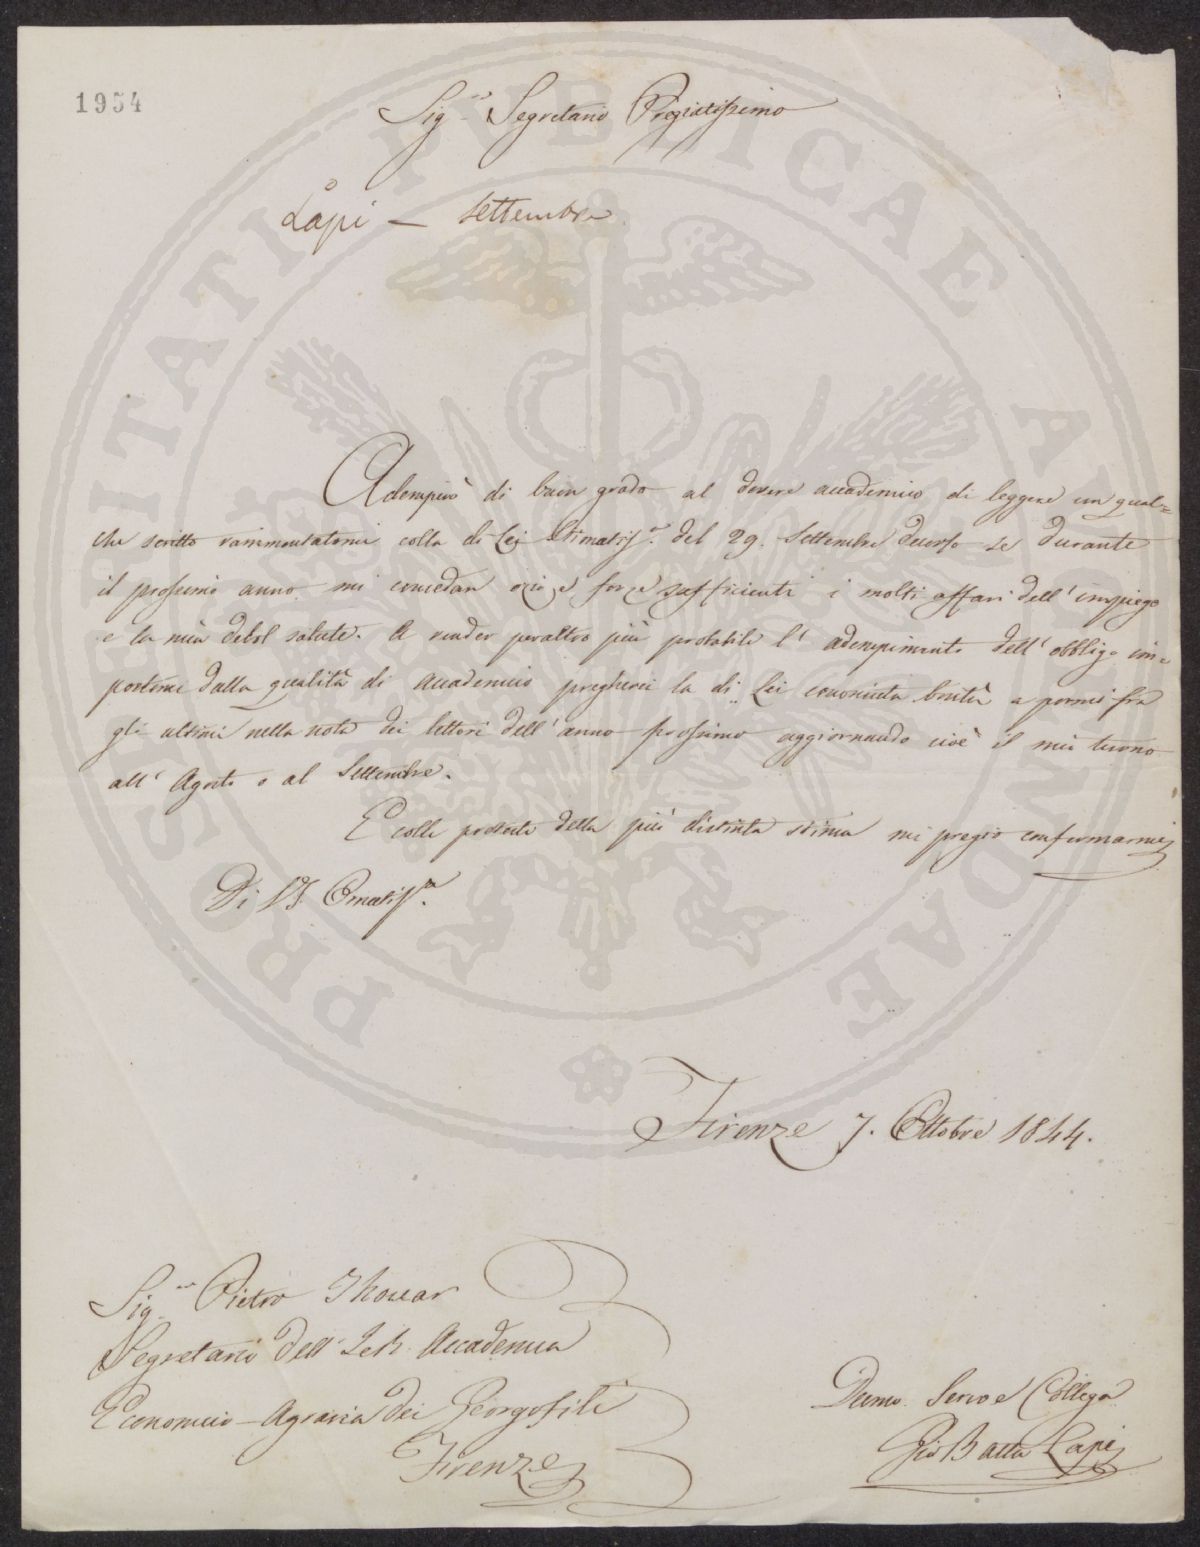 1954
Sig.re Segretario Pregiatissimo
Lapi - Settembre
Adempirò di buon grado al dovere accademico di leggere un qual=
che scritto rammentatomi colla di Lei Stimatiss.a del 29. Settembre decorso se durante
il prossimo anno mi concedan ozio e forze sufficienti i molti affari dell'impiego
e la mia debol salute. A render peraltro più probabile l'adempimento dell'obbligo im=
postomi dalla qualità di Accademico pregherei la di Lei conosciuta bontà a pormi fra
gli ultimi nella nota dei lettori dell'anno prossimo aggiornando cioè il mio turno
all'Agosto o al Settembre.
E colle proteste della più distinta stima mi pregio confermarmi
Di VS Ornatiss.ma
Firenze 7. Ottobre 1844.
Sig.re Pietro Thouar
Segretario dell'I e R. Accademia
Economico-Agraria dei Georgofili
Firenze
Devmo. Servo e Collega
Gio Batta Lapi
PROSPERITATI PUBLICAE AUGENDAE